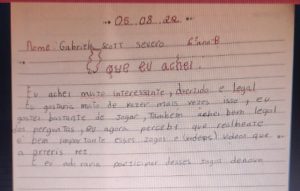 05.08.22
Nome Gabriel scott severo 6º ano-B
O que eu achei.
Eu achei muito interessante, divertido e legal
Eu gostaria muito de fazer mais vezes isso, eu
gostei bastante de jogar, também achei bem legal
as perguntas, eu agora percebi que realmente
e bem importante esses jogos e videos que
a fez
E eu adoraria participar desses jogos denovo